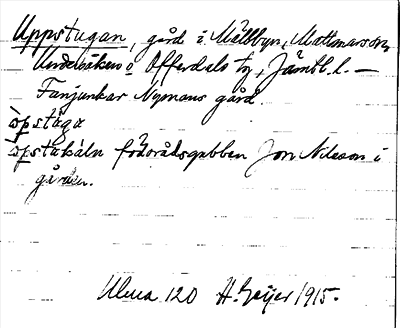 Uppstugan, gård i Mällbyn, Mattmars sn,
Undersåkers o Offerdals tg, Jämtl. l. —
Fanjunkar Nymans gård.
òpstäga
òpstäkáln föderådsgubben Jon Nilsson i
gården.
Ulma 120 H. Geijer 1915.